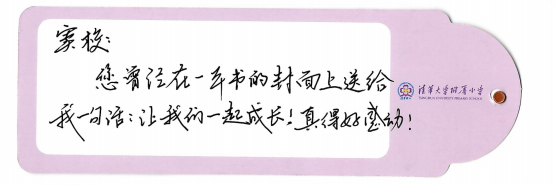 窦校：
您曾经在一本书的封面上送给
我一句话：让我们一起成长！真得好感动！
清华大学附属小学
TSINGHUA UNIVERSITY PRIMARY SCHOOL